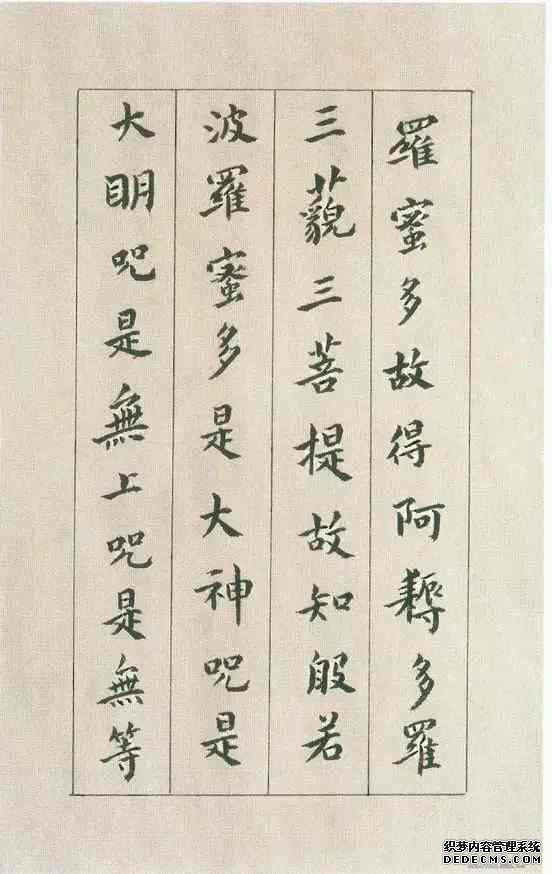 羅蜜多故得阿耨多羅
三藐三菩提故知般若
波羅蜜多是大神咒是
大明咒是無上咒是無等
织梦内容管理系统
DEDECMS.COM